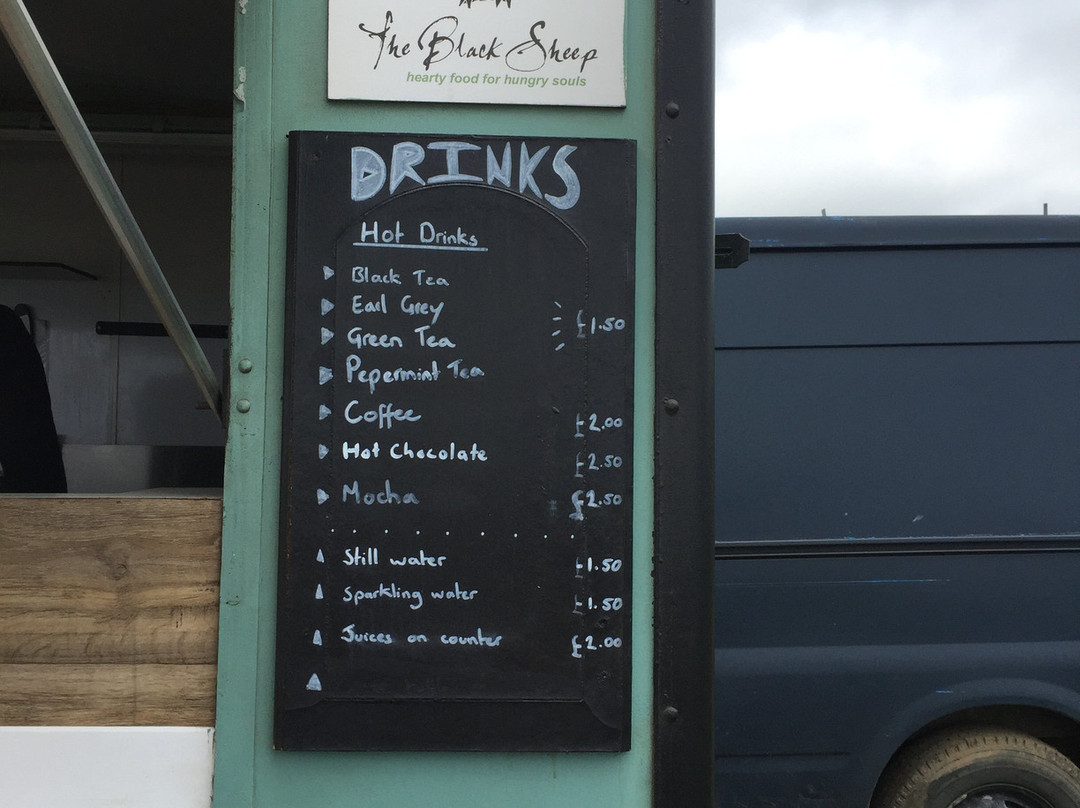 The Black Sheep
hearty food for hungry souls
DRINKS
Hot Drinks
Black Tea
Earl Grey
Green Tea £1.50
Pepermint Tea
Coffee £2.00
Hot Chocolate £2.50
Mocha £2.50
Still water £1.50
Sparkling water £1.50
Juices on counter £2.00